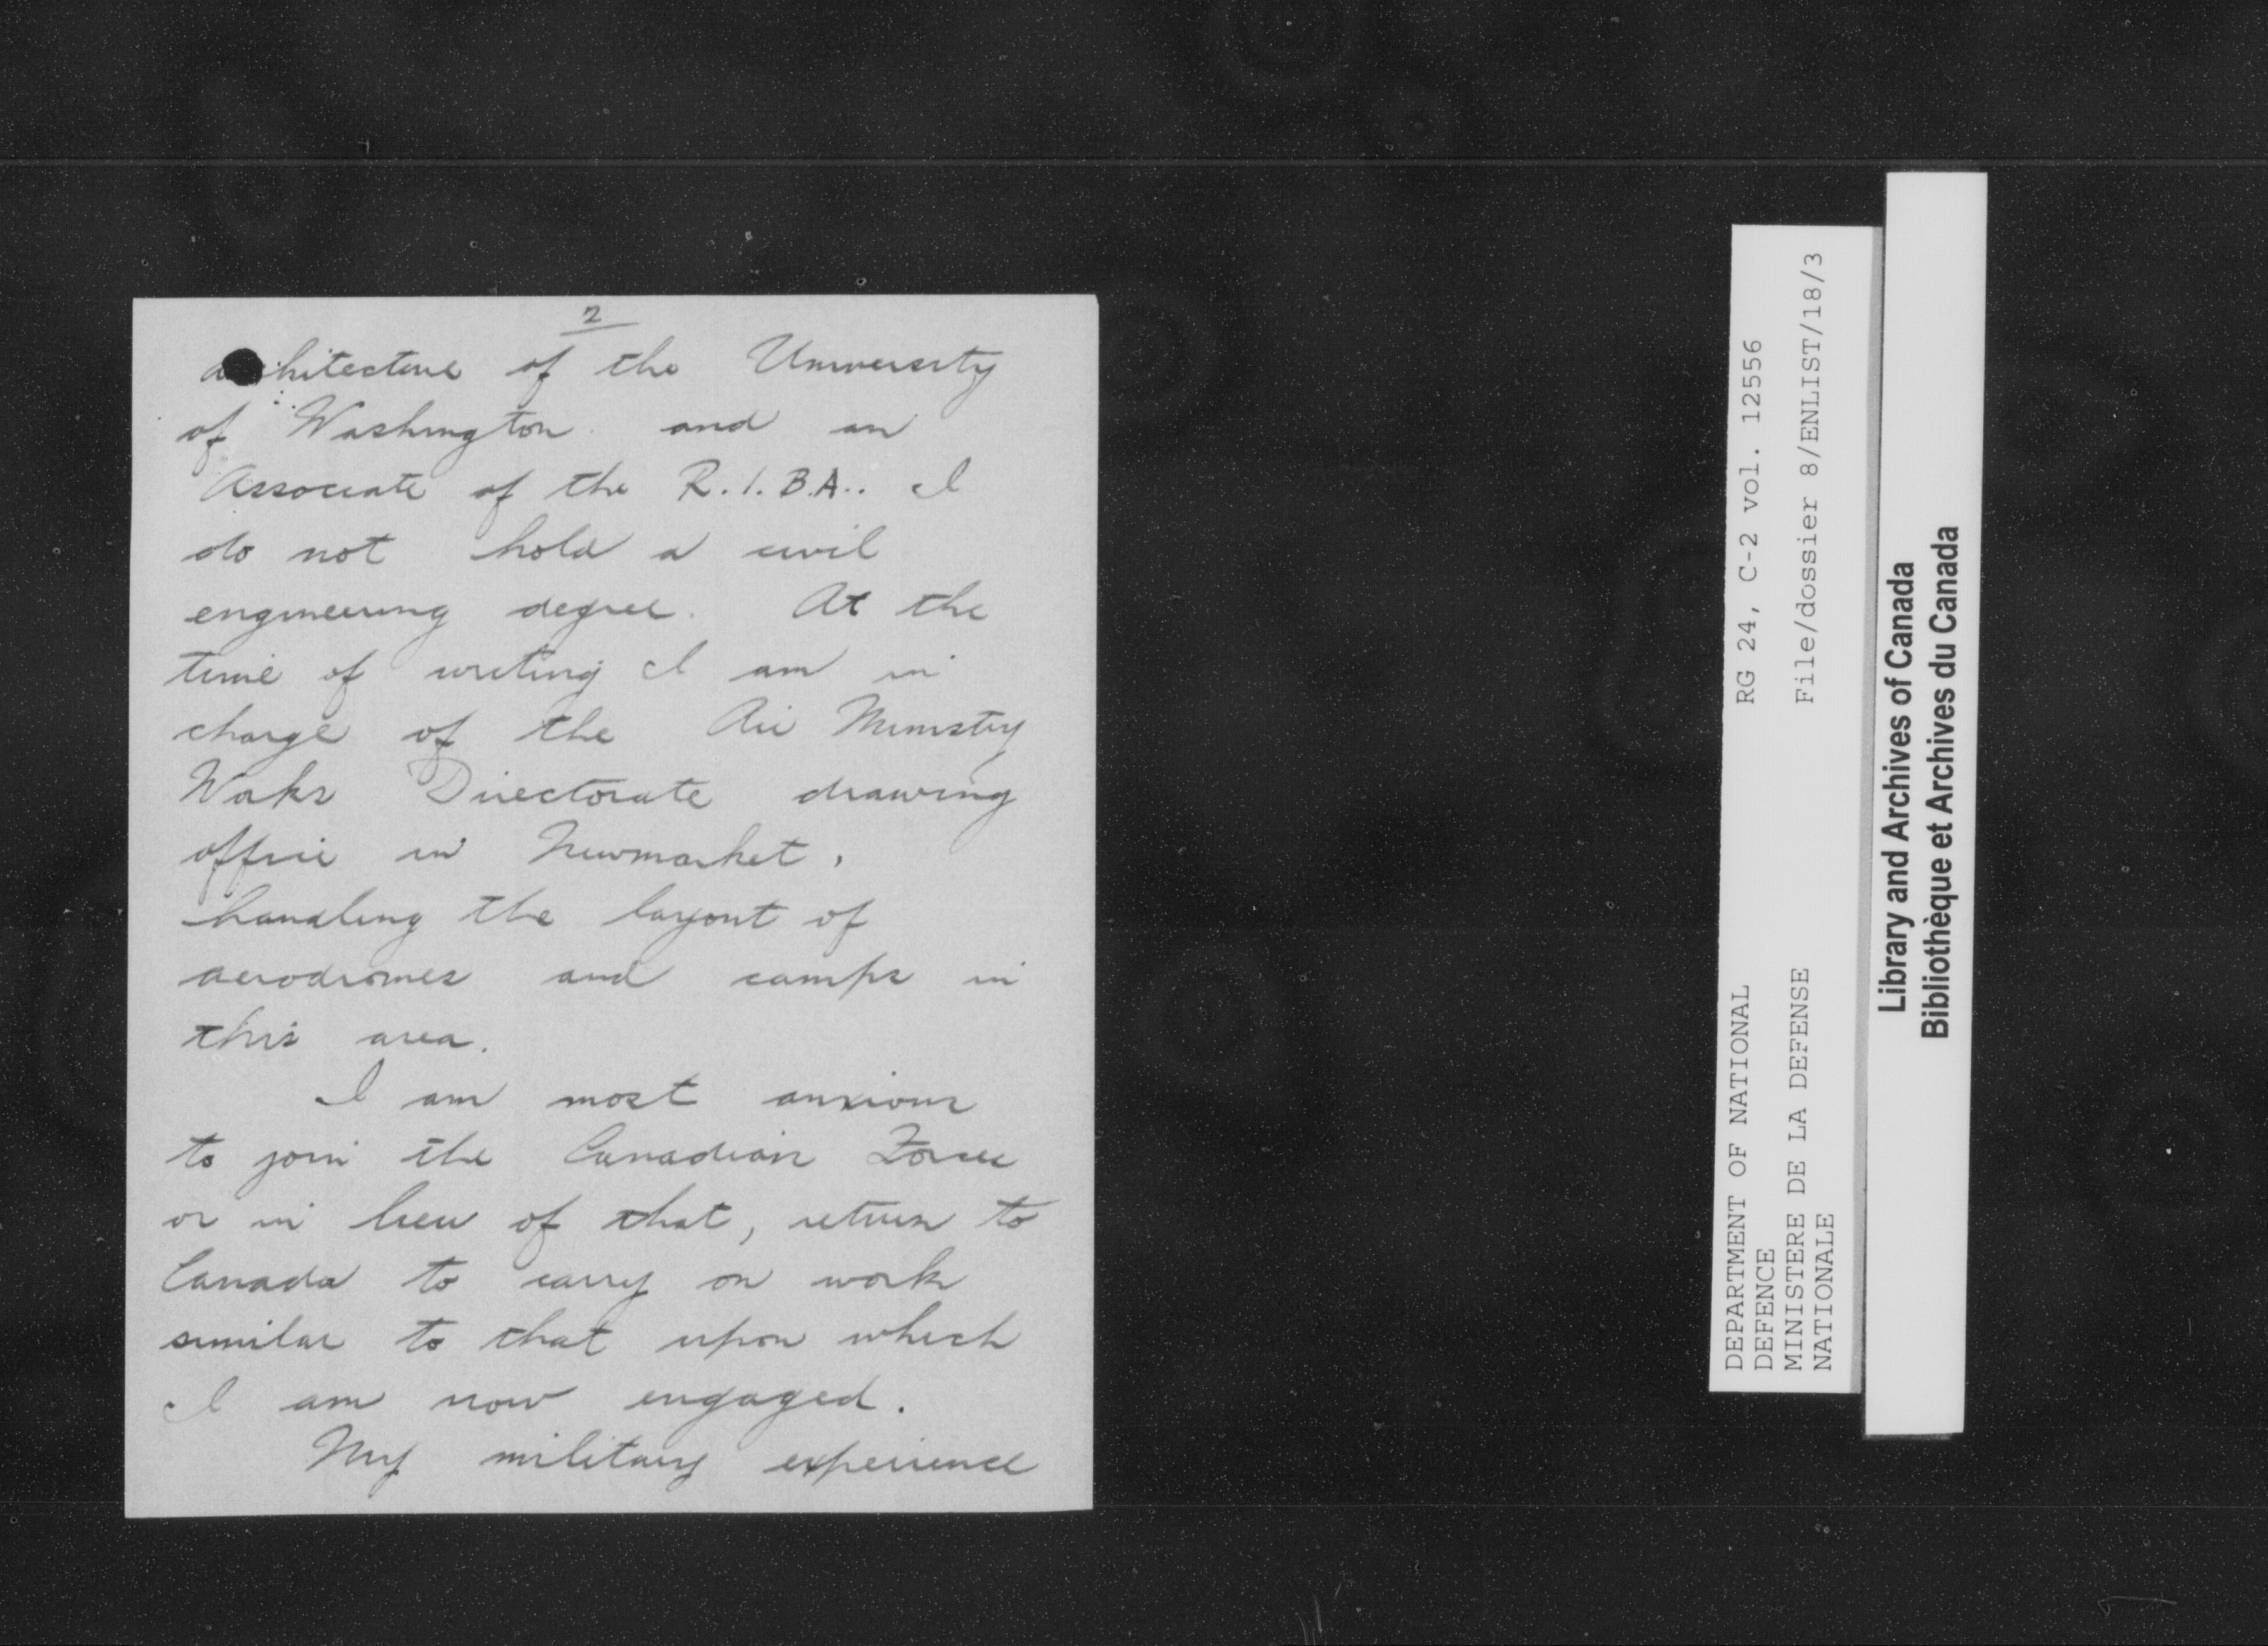 2
architecture of the University
of Washington and an
Associate of the R.I.B.A.. I
do not hold a civil
engineering degree. At the
time of writing I am in
charge of the Air Ministry
Works Directorate drawing
office in Newmarket,
handling the layout of
aerodromes and camps in
this area.
I am most anxious
to join the Canadian Forces
or in lieu of that, return to
Canada to carry on work
similar to that upon which
I am now engaged.
My military experience
DEPARTMENT OF NATIONAL
DEFENCE
MINISTERE DE LA DEFENSE
NATIONALE
RG 24, C-2 vol. 12556
File/dossier 8/ENLIST/18/3
Library and Archives of Canada
Bibliothèque et Archives du Canada